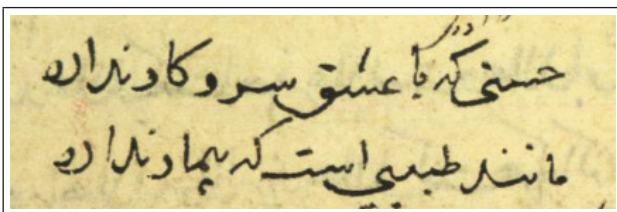 حسنی که با عشق سر و کار ندارد
مانند طبیبی است که بیمار ندارد